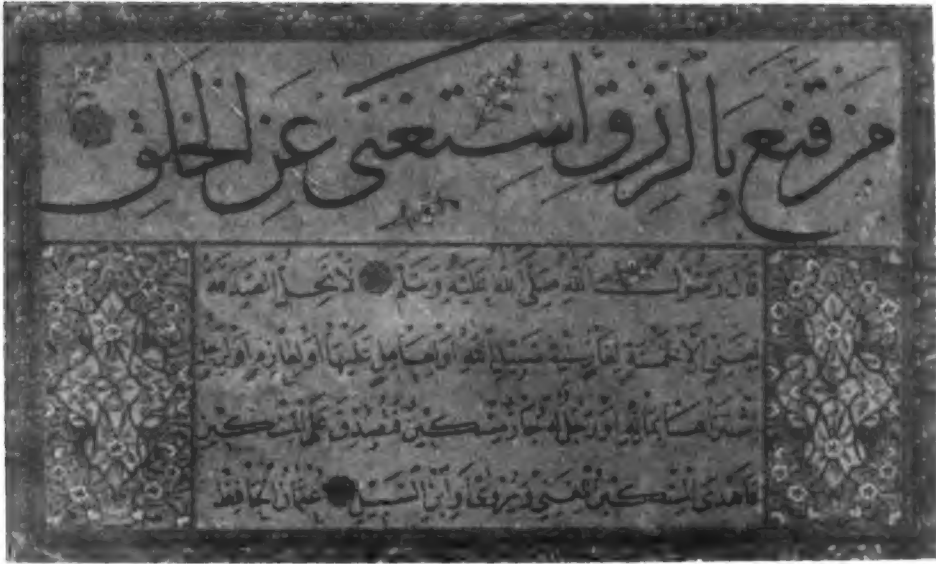 من قنع بالرزق استغنى عن الخلق
قال رسول الله صلى الله عليه وسلم لا تحل الصدقة
لغني إلا لخمسة لغاز في سبيل الله أو لعامل عليها أو لغارم أو لرجل
اشتراها بماله أو رجل له جار مسكين فتصدق على المسكين
فأهدى المسكين للغني ويروى أو ابن السبيل عثمان الحافظ